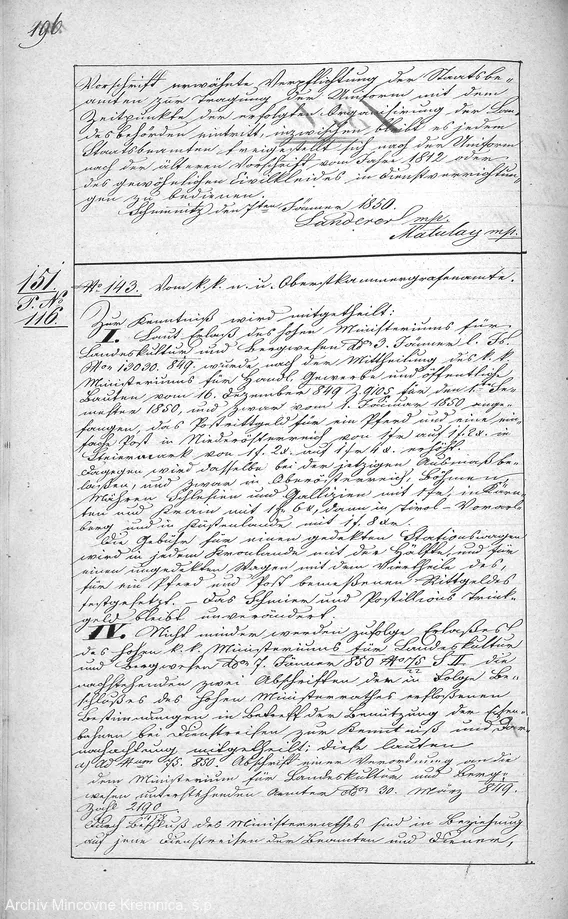 196.
Vorschrift erwähnte Verpflichtung der Staatsbe-
amten zur Tragung der Uniform mit dem
Zeitpunkte der erfolgten Organisirung der Lan-
desbehörden eintritt, inzwischen bleibt es jedem
Staatsbeamten freigestellt sich nach der Uniform
nach der älteren Vorschrift vom Jahre 1812 oder
des gewöhnlichen Civilkleides in Dienstverrichtun-
gen zu bedienen.
Schemnitz den 7ten Jänner 1850.
Landerer mp.
Matulay mp.
151.
P. No
116.
No 143. Vom k. k. n. u. Oberstkammergrafenamte.
Zur Kenntniß wird mitgetheilt:
I. Laut Erlaß des hohen Ministeriums für
Landeskultur und Bergwesen ddo 3. Jänner l. Js.
No 12020. 849. wurde nach der Mittheilung des k. k.
Ministeriums für Handl. Gewerbe und öffentliche
Bauten vom 16. Dezember 849 Z. 9105 für den 1. Se-
mester 1850, und zwar vom 1. Jänner 1850 ange-
fangen, das Postrittgeld für ein Pferd und eine ein-
fache Post in Niederösterreich von 1 f auf 1 f. 2 x. in
Steiermark von 1 f. 2 x. auf 1 f 4 x. erhöht.
Dagegen wird dasselbe bei der jetzigen Ausmaß be-
laßen, und zwar in Oberösterreich, Böhmen
Mähren Schlesien und Gallizien mit 1 f, in Kärn-
ten und Krain mit 1 f. 6 x, dann in Tirol - Vorarl-
berg und im Küstenlande mit 1 f. 8 x.
Die Gebühr für einen gedekten Stationswagen
wird in jedem Kronlande mit der Hälfte, und für
einen ungedekten Wagen mit dem Viertheile des,
für ein Pferd und Post bemeßenen Rittgeldes
festgesetzt. – Das Schmier und Postillions Trink-
geld bleibt unverändert.
IV. Nicht minder werden zufolge Erlaßes
des hohen k. k. Ministeriums für Landeskultur
und Bergwesen ddo 7. Jänner 850 No 75 die
nachstehenden zwei Abschriften der in Folge Be-
schlußes des hohen Ministerrathes erfloßenen
Bestimmungen in Betreff der Benützung der Eisen-
bahnen bei Dienstreisen zur Kenntniß und Dar-
nachachtung mitgetheilt; diese lauten
1) Ad Num 75. 850 Abschrift einer Verordnung an die
dem Ministerium für Landeskultur und Berg-
wesen unterstehenden Aemter ddo 30. März 849.
Zahl 2190
Durch Beschluß des Ministerrathes sind in Beziehung
auf jene Dienstreisen der Beamten und Diener,
Archiv Mincovne Kremnica, š.p.